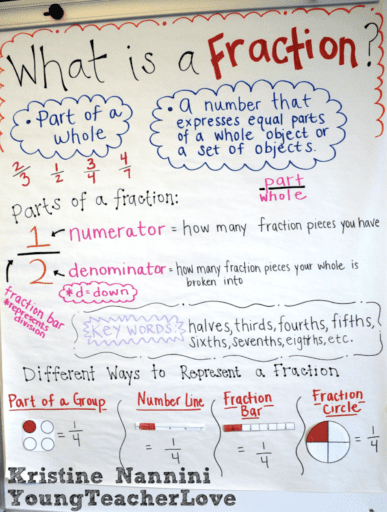 What is a Fraction?
• Part of a
whole
• a number that
expresses equal parts
of a whole object or
a set of objects.
2/3 1/2 3/4 4/7
part
whole
Parts of a fraction:
1 ← numerator = how many fraction pieces you have
2 ← denominator = how many fraction pieces your whole is
broken into
*d=down
fraction bar
*represents
division
Key Words: halves, thirds, fourths, fifths,
Sixths, sevenths, eighths, etc.
Different Ways to Represent a Fraction
Part of a Group
= 1/4
Number Line
= 1/4
Fraction
Bar
= 1/4
Fraction
Circle
= 1/4
Kristine Nannini
YoungTeacherLove